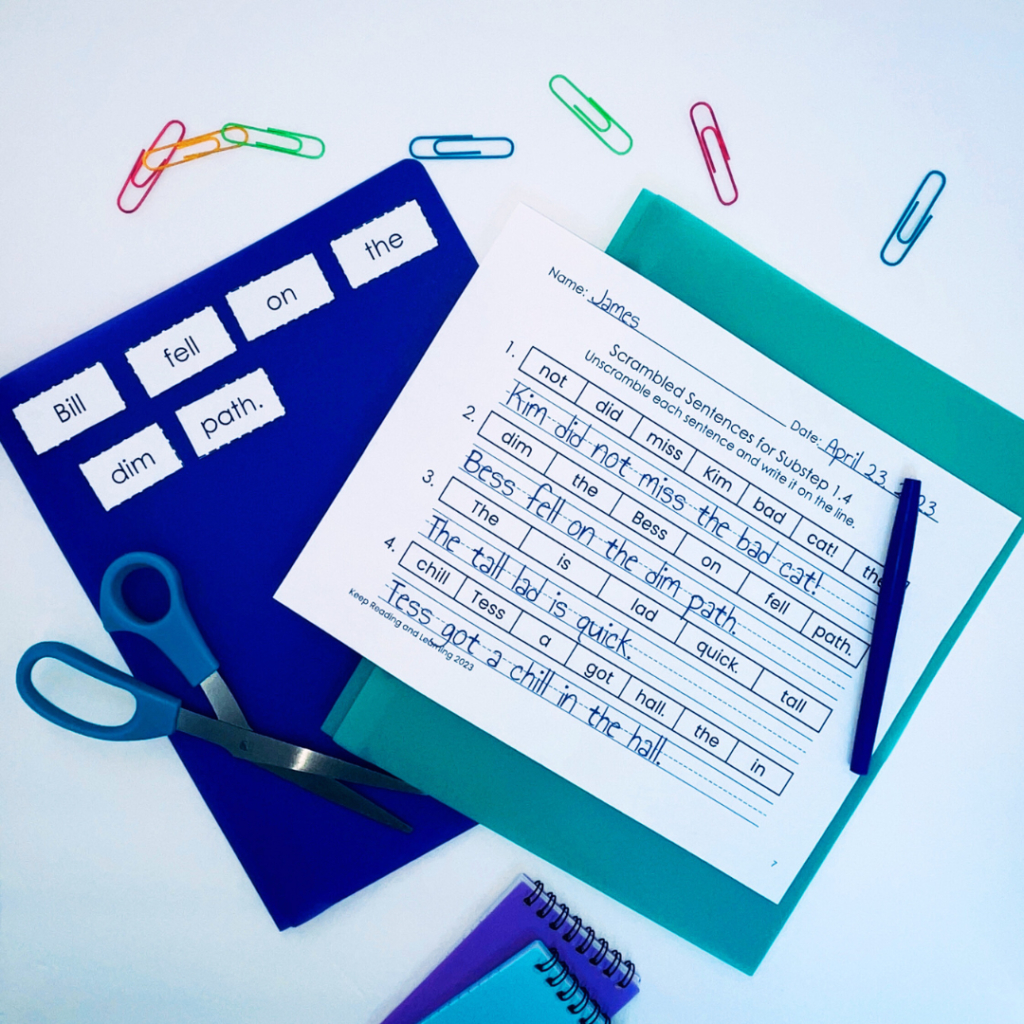 Bill fell on the
dim path.
Name: James
Date: April 23
Scrambled Sentences for Substep 1.4
Unscramble each sentence and write it on the line.
1. not did miss Kim bad cat!
Kim did not miss the bad cat!
2. dim the Bess on fell path.
Bess fell on the dim path.
3. The is lad quick. tall
The tall lad is quick.
4. chill Tess a got hall. the in
Tess got a chill in the hall.
Keep Reading and Learning 2023
7